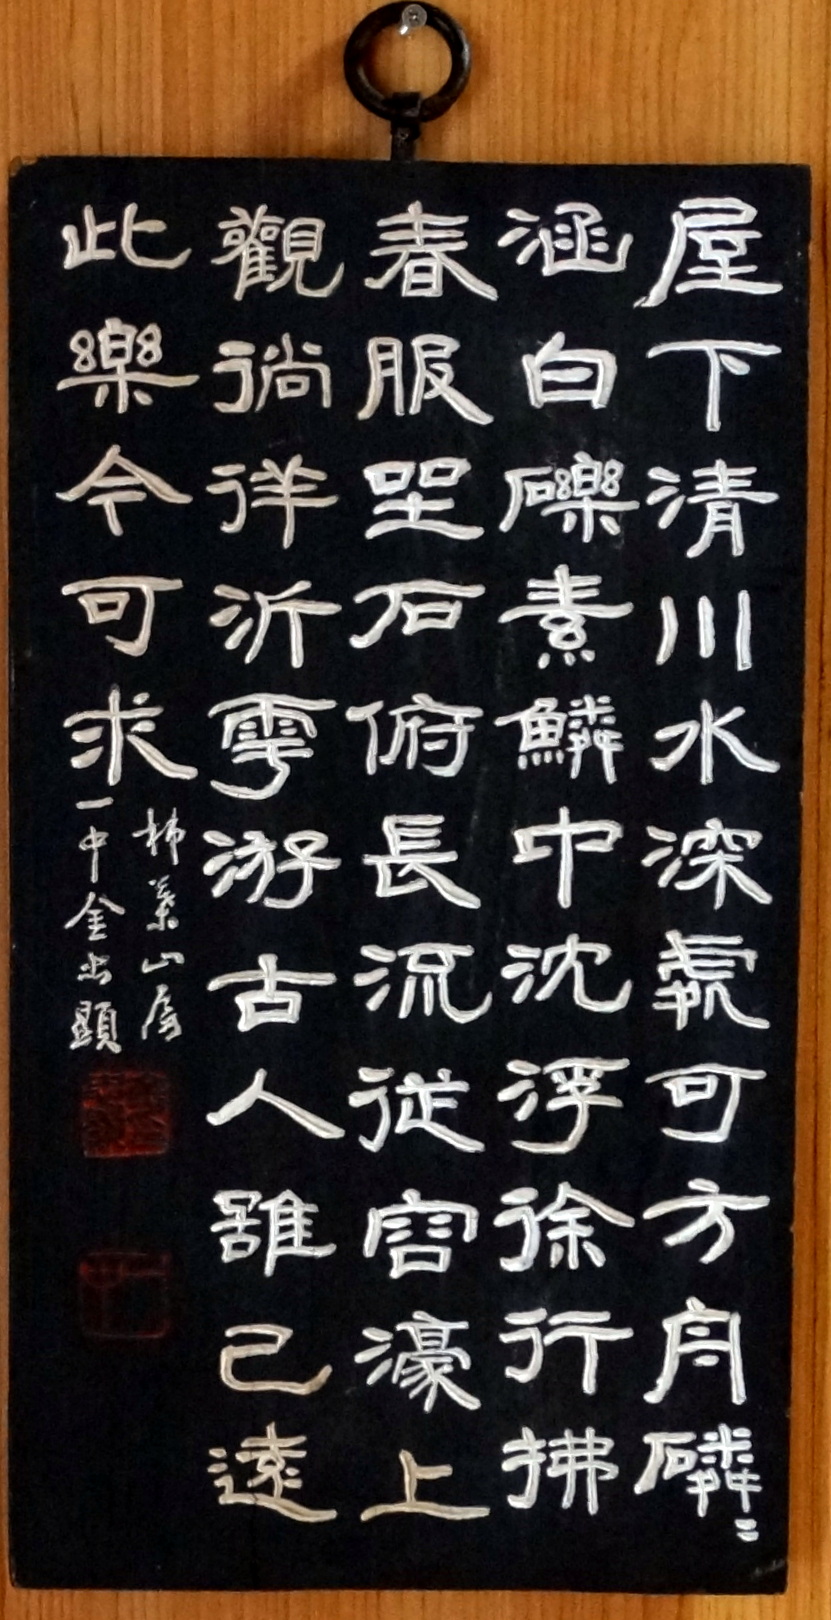 屋下清川水深處可方舟磷〻
涵白礫素鱗中沈浮徐行拂
春服坐石俯長流從容濠上
觀徜徉沂雩游古人雖已遠
此樂今可求
柿葉山房
一中金忠顯